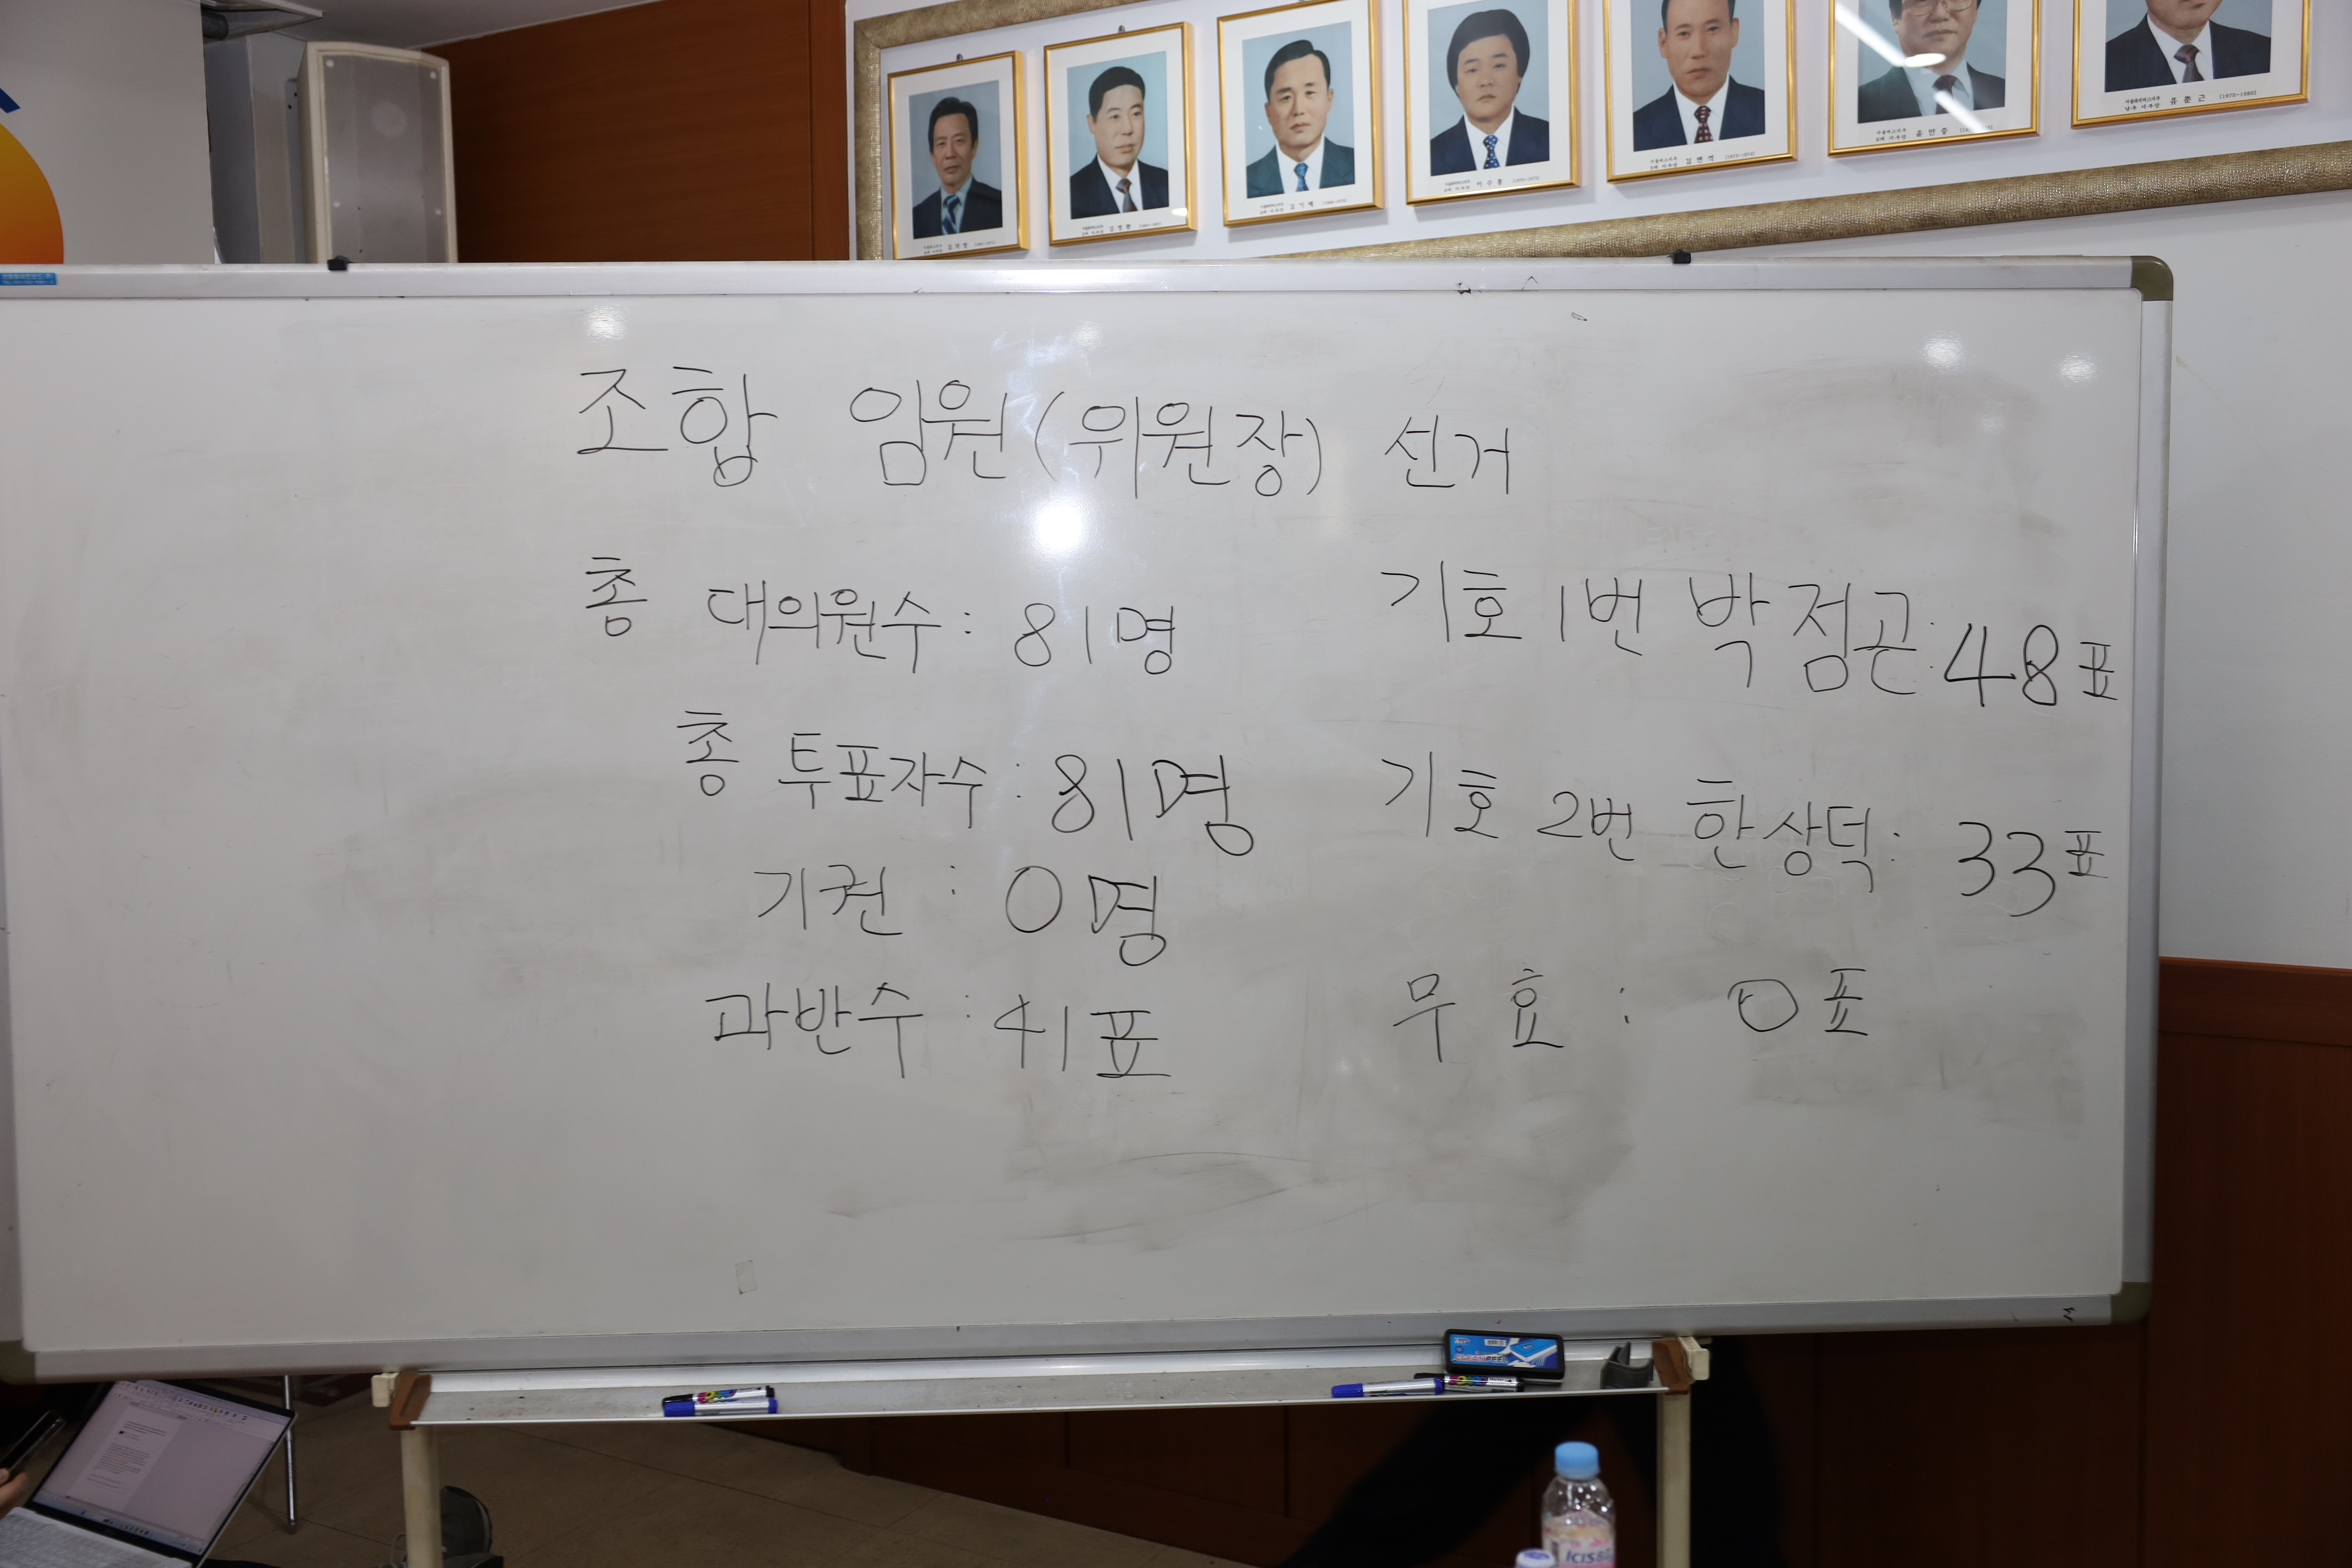 조합 임원(위원장) 선거
총 대의원수 : 81명
총 투표자수 : 81명
기권 : 0명
과반수 : 41표
기호 1번 박점곤 : 48표
기호 2번 한상덕 : 33표
무효 : 0표